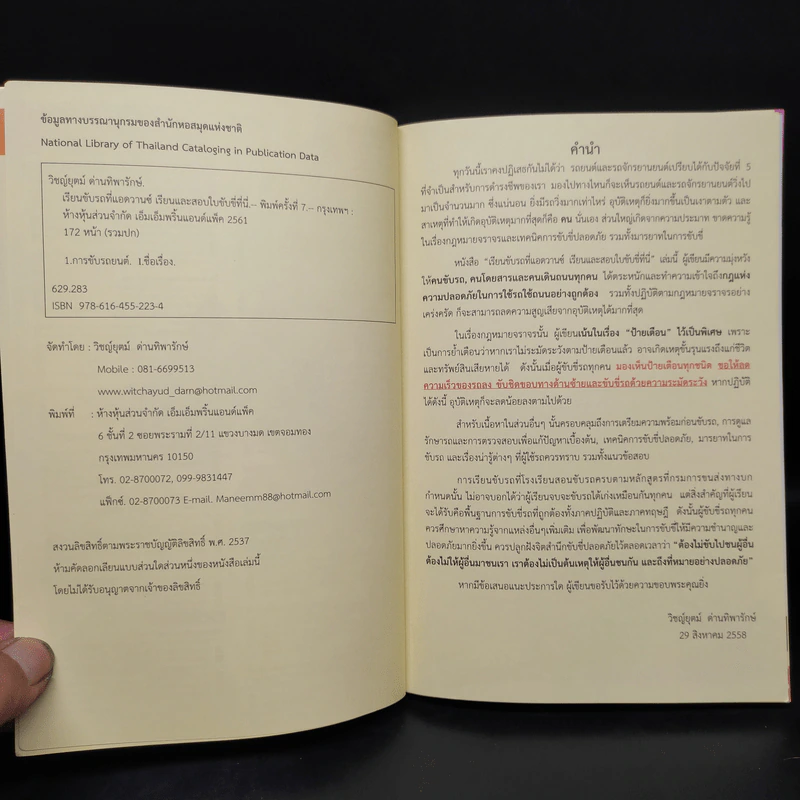 ข้อมูลทางบรรณานุกรมของสำนักหอสมุดแห่งชาติ
National Library of Thailand Cataloging in Publication Data
วิชญ์ยุตม์ ด่านทิพารักษ์.
เรียนขับรถที่แอดวานซ์ เรียนและสอบใบขับขี่ที่นี่.-- พิมพ์ครั้งที่ 7.-- กรุงเทพฯ :
ห้างหุ้นส่วนจำกัด เอ็มเอ็มพริ้นแอนด์แพ็ค 2561
172 หน้า (รวมปก)
1.การขับรถยนต์. I.ชื่อเรื่อง.
629.283
ISBN 978-616-455-223-4
จัดทำโดย : วิชญ์ยุตม์ ด่านทิพารักษ์
Mobile : 081-6699513
www.witchayud_darn@hotmail.com
พิมพ์ที่ : ห้างหุ้นส่วนจำกัด เอ็มเอ็มพริ้นแอนด์แพ็ค
6 ชั้นที่ 2 ซอยพระรามที่ 2/11 แขวงบางมด เขตจอมทอง
กรุงเทพมหานคร 10150
โทร. 02-8700072, 099-9831447
แฟ็กซ์. 02-8700073 E-mail. Maneemm88@hotmail.com
สงวนลิขสิทธิ์ตามพระราชบัญญัติลิขสิทธิ์ พ.ศ. 2537
ห้ามคัดลอกเลียนแบบส่วนใดส่วนหนึ่งของหนังสือเล่มนี้
โดยไม่ได้รับอนุญาตจากเจ้าของลิขสิทธิ์
คำนำ
ทุกวันนี้เราคงปฏิเสธกันไม่ได้ว่า รถยนต์และรถจักรยานยนต์เปรียบได้กับปัจจัยที่ 5
ที่จำเป็นสำหรับการดำรงชีพของเรา มองไปทางไหนก็จะเห็นรถยนต์และรถจักรยานยนต์วิ่งไป
มาเป็นจำนวนมาก ซึ่งแน่นอน ยิ่งมีรถวิ่งมากเท่าไหร่ อุบัติเหตุก็ยิ่งมากขึ้นเป็นเงาตามตัว และ
สาเหตุที่ทำให้เกิดอุบัติเหตุมากที่สุดก็คือ คน นั่นเอง ส่วนใหญ่เกิดจากความประมาท ขาดความรู้
ในเรื่องกฎหมายจราจรและเทคนิคการขับขี่ปลอดภัย รวมทั้งมารยาทในการขับขี่
หนังสือ “เรียนขับรถที่แอดวานซ์ เรียนและสอบใบขับขี่ที่นี่” เล่มนี้ ผู้เขียนมีความมุ่งหวัง
ให้คนขับรถ, คนโดยสารและคนเดินถนนทุกคน ได้ตระหนักและทำความเข้าใจถึงกฎแห่ง
ความปลอดภัยในการใช้รถใช้ถนนอย่างถูกต้อง รวมทั้งปฏิบัติตามกฎหมายจราจรอย่าง
เคร่งครัด ก็จะสามารถลดความสูญเสียจากอุบัติเหตุได้มากที่สุด
ในเรื่องกฎหมายจราจรนั้น ผู้เขียนเน้นในเรื่อง “ป้ายเตือน” ไว้เป็นพิเศษ เพราะ
เป็นการย้ำเตือนว่าหากเราไม่ระมัดระวังตามป้ายเตือนแล้ว อาจเกิดเหตุขั้นรุนแรงถึงแก่ชีวิต
และทรัพย์สินเสียหายได้ ดังนั้นเมื่อผู้ขับขี่รถทุกคน มองเห็นป้ายเตือนทุกชนิด ขอให้ลด
ความเร็วของรถลง ขับชิดขอบทางด้านซ้ายและขับขี่รถด้วยความระมัดระวัง หากปฏิบัติ
ได้ดังนี้ อุบัติเหตุก็จะลดน้อยลงตามไปด้วย
สำหรับเนื้อหาในส่วนอื่นๆ นั้นครอบคลุมถึงการเตรียมความพร้อมก่อนขับรถ, การดูแล
รักษารถและการตรวจสอบเพื่อแก้ปัญหาเบื้องต้น, เทคนิคการขับขี่ปลอดภัย, มารยาทในการ
ขับรถ และเรื่องน่ารู้ต่างๆ ที่ผู้ใช้รถควรทราบ รวมทั้งแนวข้อสอบ
การเรียนขับรถที่โรงเรียนสอนขับรถครบตามหลักสูตรที่กรมการขนส่งทางบก
กำหนดนั้น ไม่อาจบอกได้ว่าผู้เรียนจบจะขับรถได้เก่งเหมือนกันทุกคน แต่สิ่งสำคัญที่ผู้เรียน
จะได้รับคือพื้นฐานการขับขี่รถที่ถูกต้องทั้งภาคปฏิบัติและภาคทฤษฎี ดังนั้นผู้ขับขี่รถทุกคน
ควรศึกษาหาความรู้จากแหล่งอื่นๆเพิ่มเติม เพื่อพัฒนาทักษะในการขับขี่ให้มีความชำนาญและ
ปลอดภัยมากยิ่งขึ้น ควรปลูกฝังจิตสำนึกขับขี่ปลอดภัยไว้ตลอดเวลาว่า “ต้องไม่ขับไปชนผู้อื่น
ต้องไม่ให้ผู้อื่นมาชนเรา เราต้องไม่เป็นต้นเหตุให้ผู้อื่นชนกัน และถึงที่หมายอย่างปลอดภัย”
หากมีข้อเสนอแนะประการใด ผู้เขียนขอรับไว้ด้วยความขอบพระคุณยิ่ง
วิชญ์ยุตม์ ด่านทิพารักษ์
29 สิงหาคม 2558